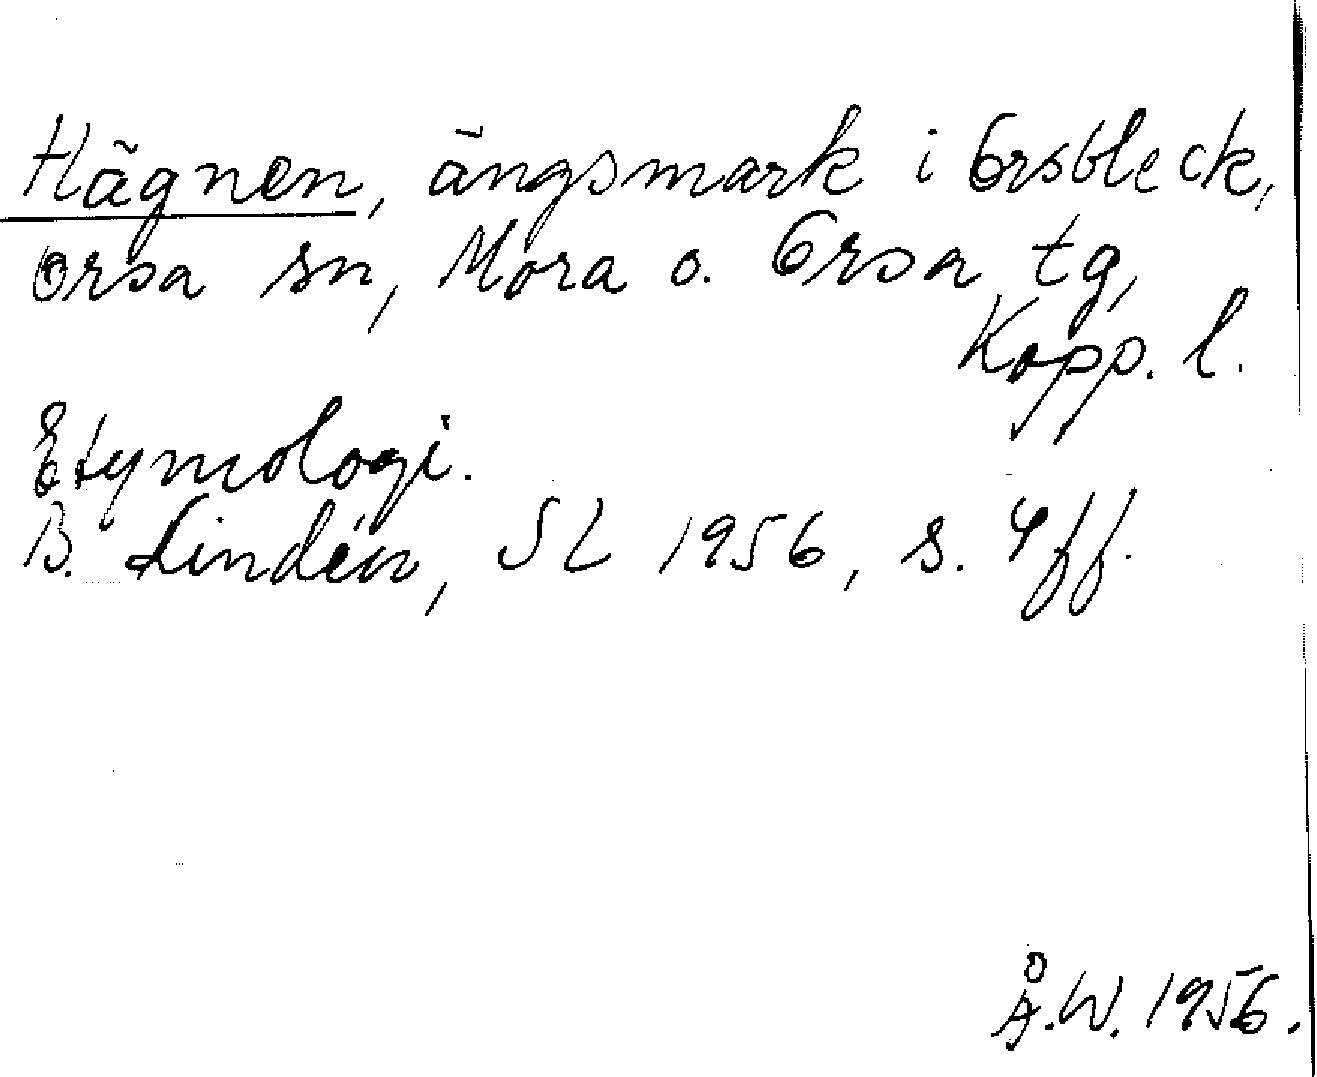 Hägnen, ängsmark i Orsbleck,
Orsa sn, Mora o. Orsa tg,
Kopp. l.
Etymologi.
B. Lindén, SL 1956, s. 4ff.
Å.W. 1956.